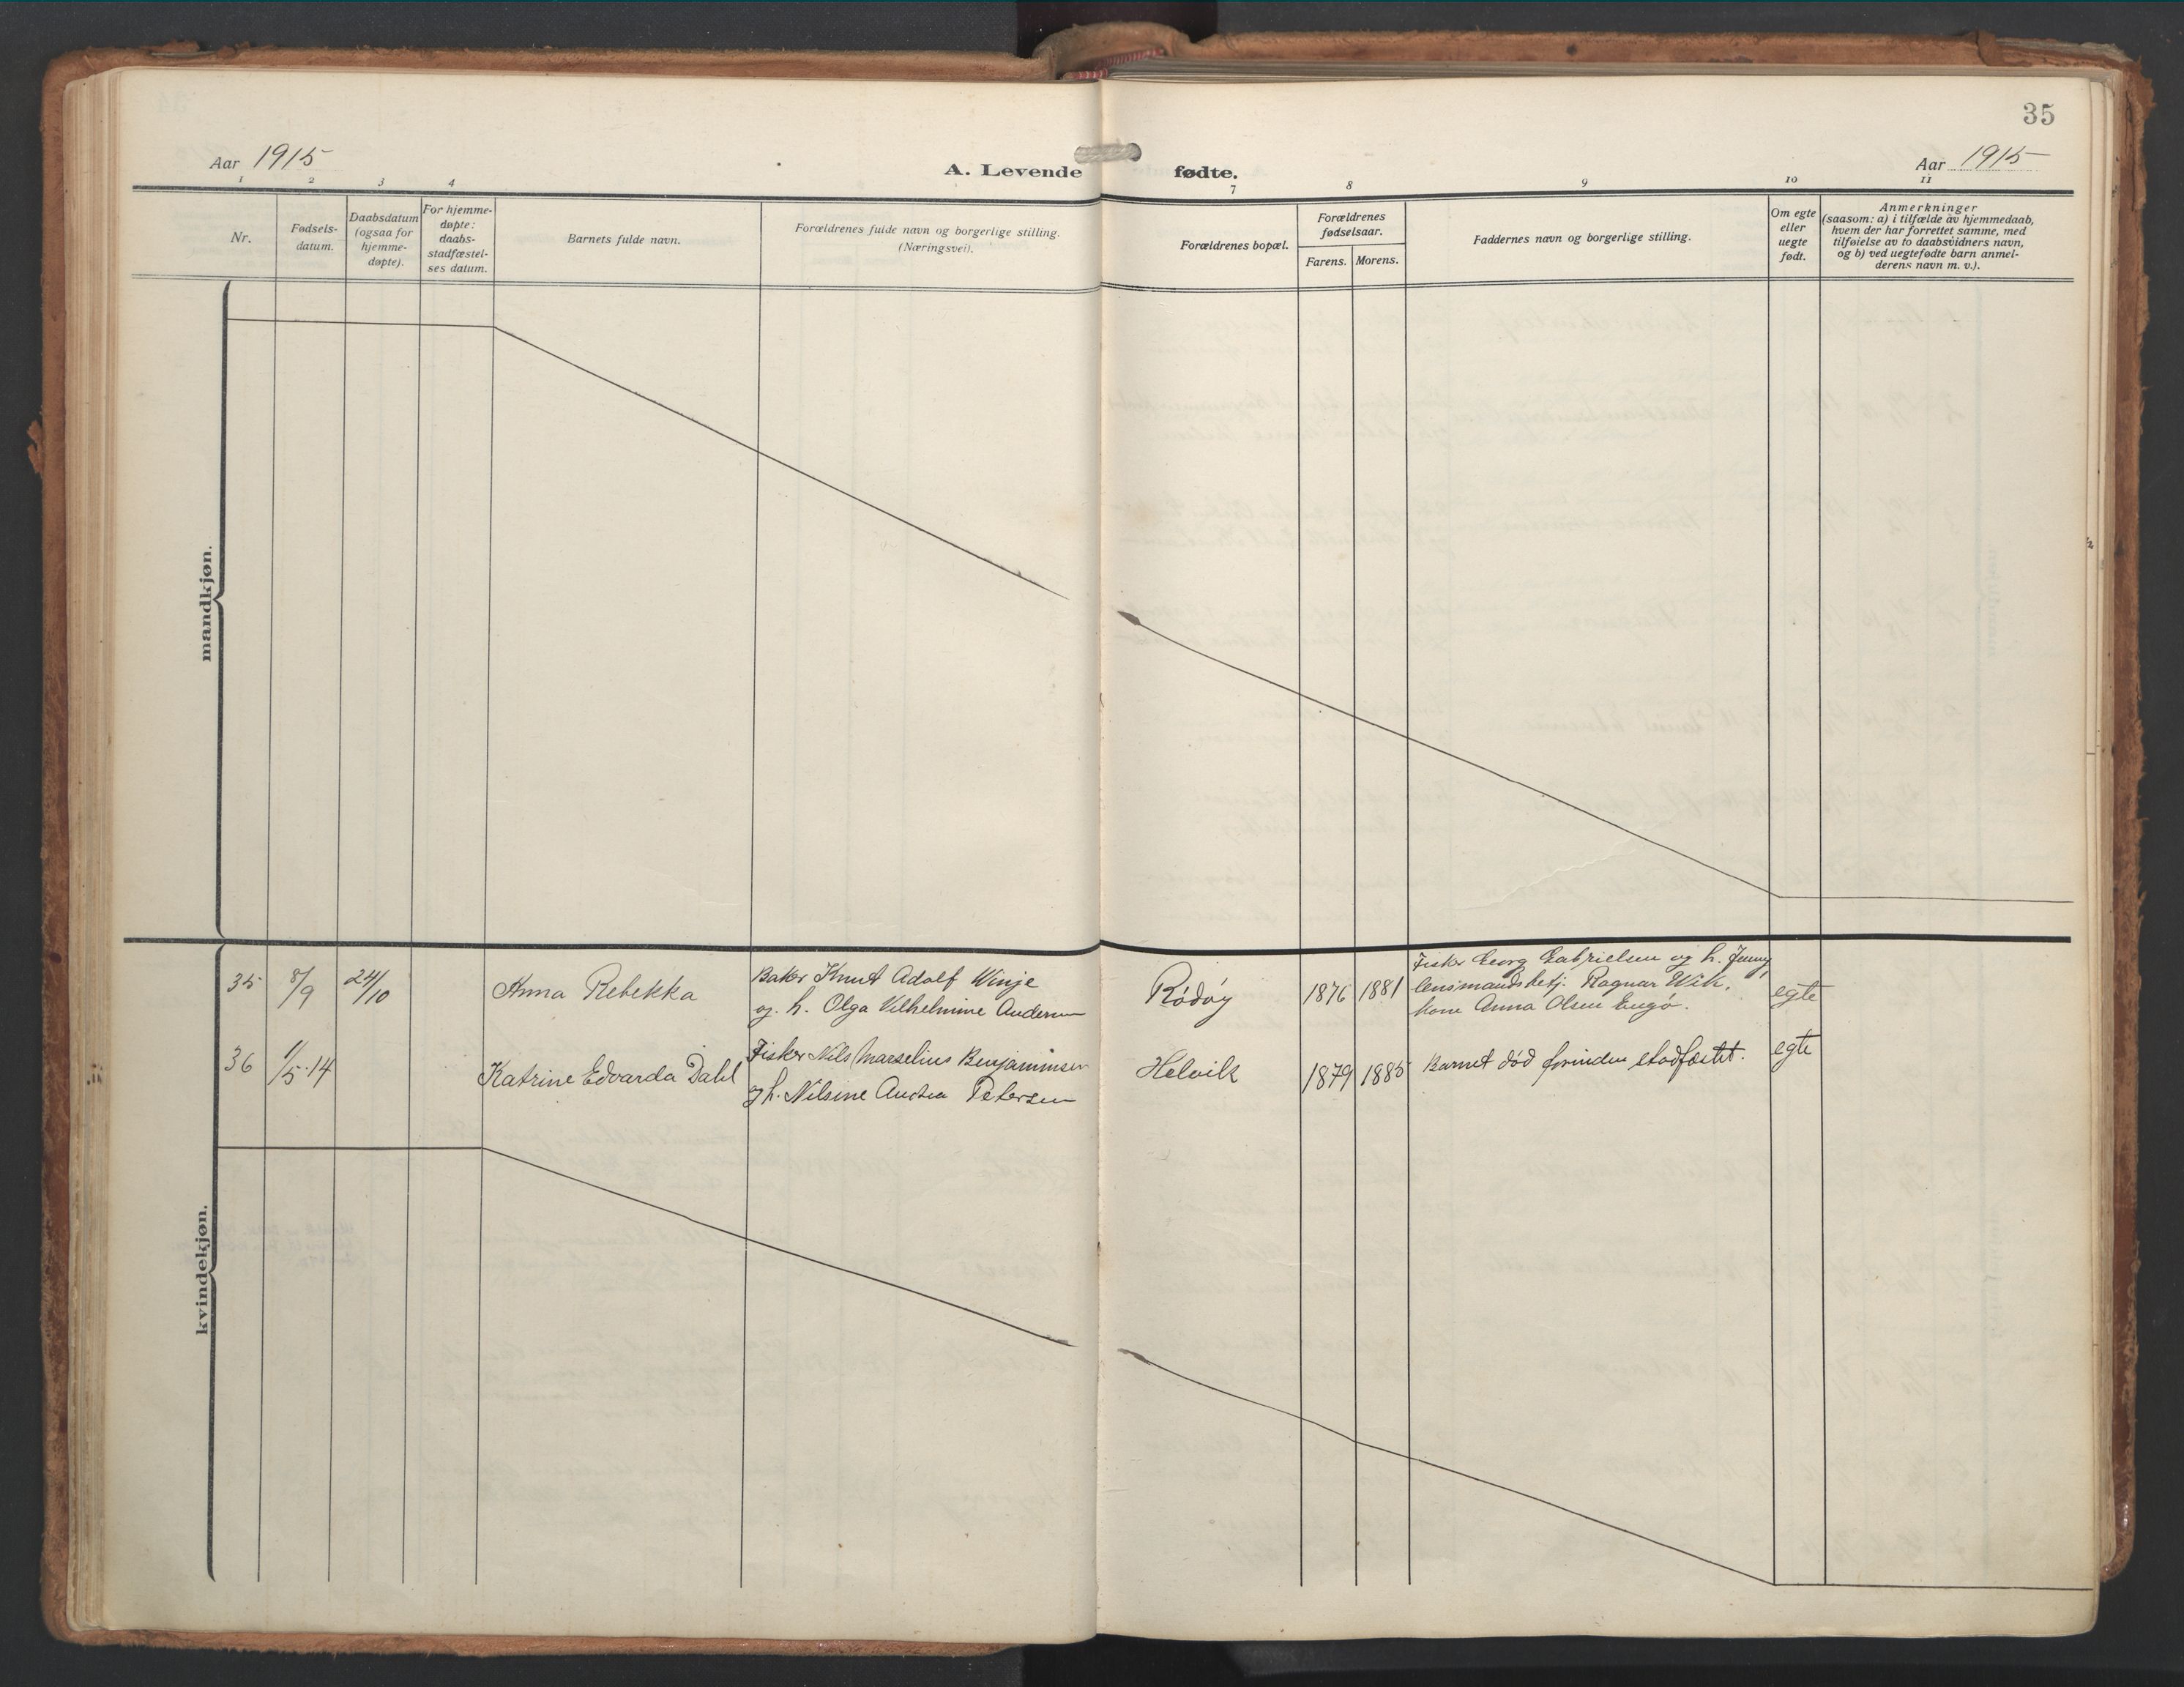 35
Aar 1915
A. Levende fødte.
Aar 1915
1 2 3 4 7 8 9 10 11
Nr.
Fødsels-
datum.
Daabsdatum
(ogsaa for
hjemme-
døpte).
For hjemme-
døpte:
daabs-
stadfæstel-
ses datum.
Barnets fulde navn.
Forældrenes fulde navn og borgerlige stilling.
(Næringsvei).
Forældrenes bopæl.
Forældrenes
fødselsaar.
Farens. Morens.
Faddernes navn og borgerlige stilling.
Om egte
eller
uegte
født.
Anmerkninger
(saasom: a) i tilfælde av hjemmedaab,
hvem der har forrettet samme, med
tilføielse av to daabsvidners navn,
og b) ved uegtefødte barn anmel-
derens navn m. v.).
mandkjøn.
kvindekjøn.
35 8/9 24/10 Anna Rebekka
Baker Knut Adolf Winje
og h. Olga Vilhelmine Andersen
Rödöy 1876 1881
Fisker Georg Gabrielsen og h. Jenny,
lensmandsbetj. Ragnar Wik,
kone Anna Olsen Engö.
egte
36 1/5.14 Katrine Edvarda Dahl
Fisker Nils Marselius Benjaminsen
og h. Nilsine Andrea Petersen
Helvik 1879 1885
Barnet död forinden stadfæstet.
egte